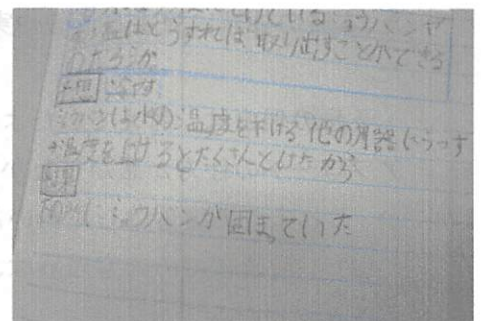 ミョウバンや
はどうすれば取り出すことができる
のだろうか
予想 冷やす
ミョウバンは水の温度を下げる 他の容器にうつす
温度を上げるとたくさんとけたから
結果
ミョウバンが固まっていた